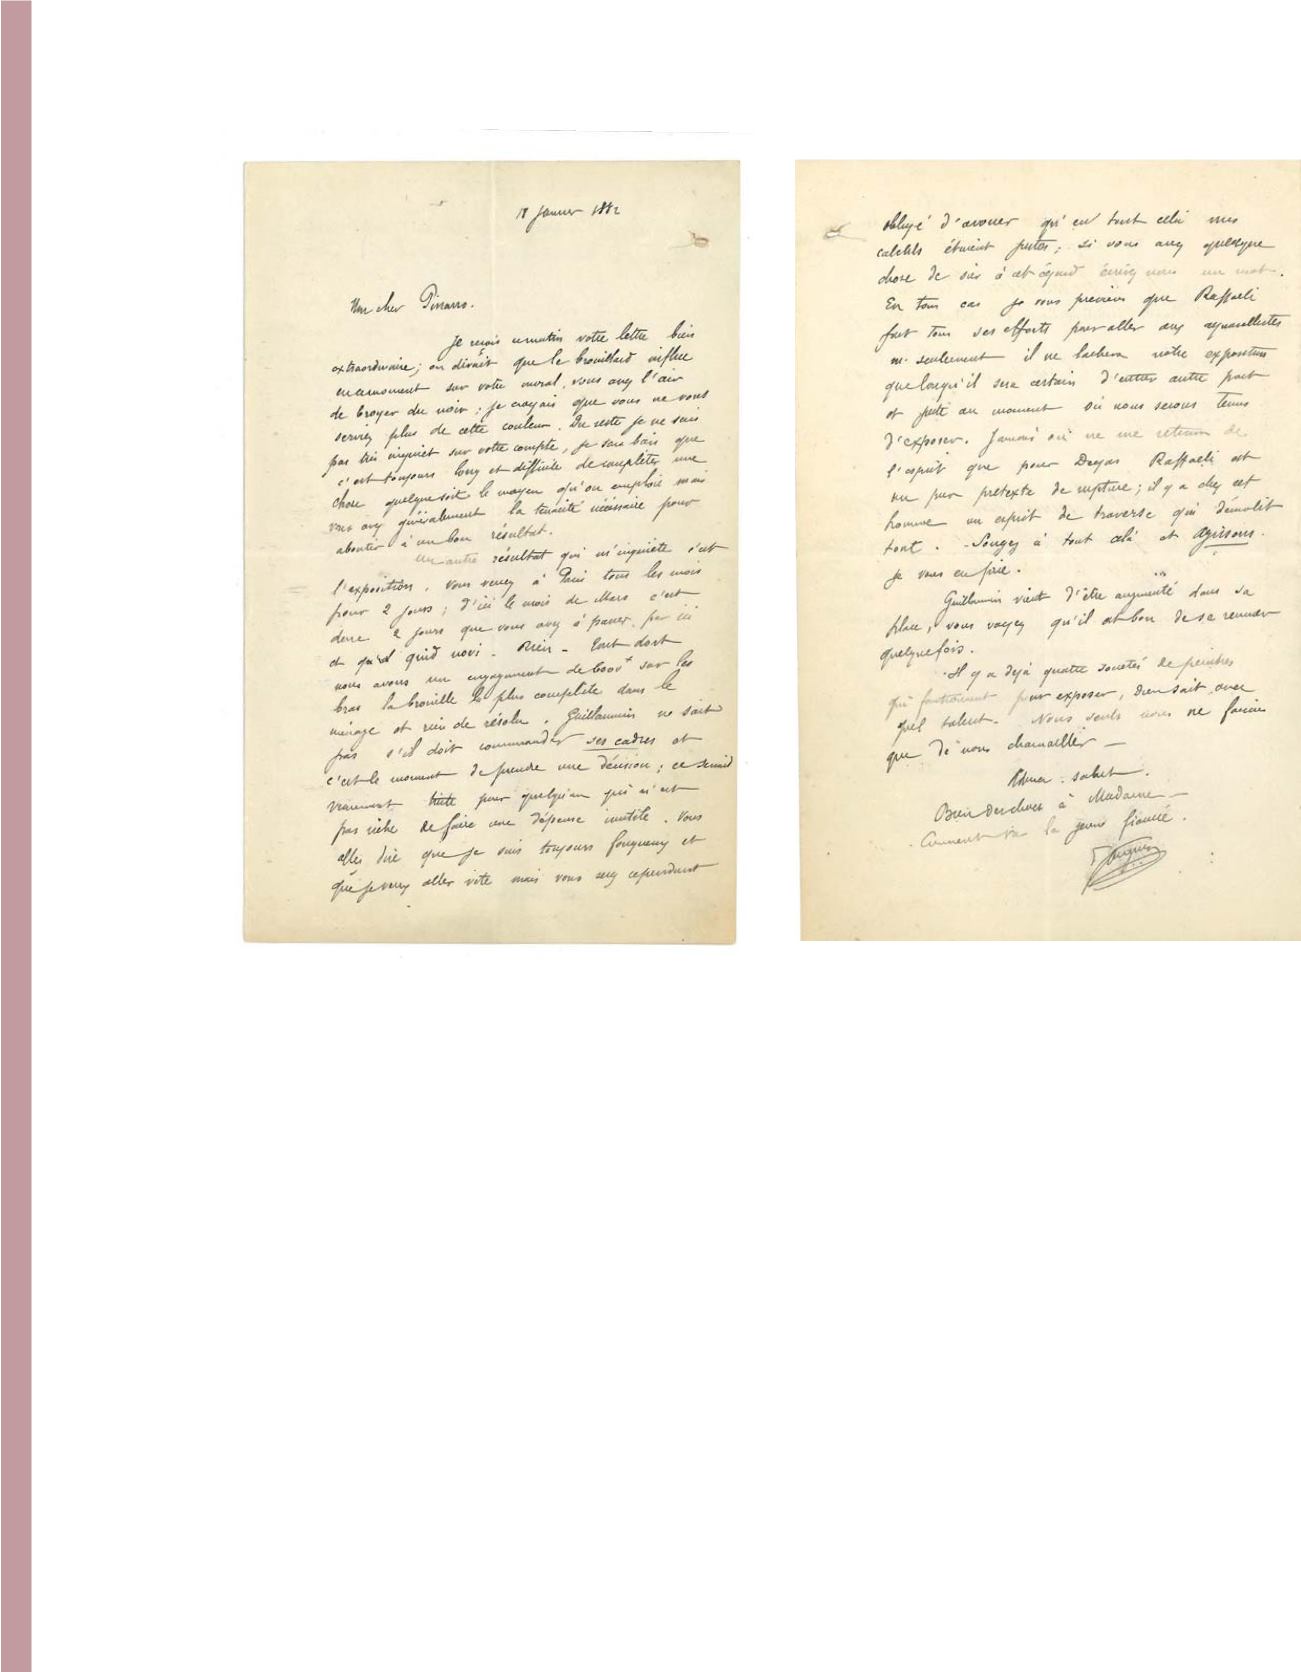 18 Janvier 1882
Mon cher Pissarro.
Je reçois ce matin votre lettre bien
extraordinaire ; on dirait que le brouillard influe
en ce moment sur votre moral, vous avez l'air
de broyer du noir ; je croyais que vous ne vous
serviez plus de cette couleur. Du reste je ne suis
pas très inquiet sur votre compte, je sais bien que
c'est toujours long et difficile de compléter une
chose quelque soit le moyen qu'on emploie mais
vous avez généralement la tenacité nécéssaire pour
aboutir à un bon résultat.
Un autre résultat qui m'inquiète c'est
l'exposition. Vous venez à Paris tous les mois
pour 2 jours ; d'ici le mois de Mars c'est
donc 2 jours que vous avez à passer par ici
et quid novi - Rien - Tout dort
nous avons un engagement de 6000f sur les
bras la brouille la plus complète dans le
ménage et rien de résolu. Guillaumin ne sait
pas s'il doit commander ses cadres et
c'est le moment de prendre une décision ; ce serait
vraiment triste pour quelqu'un qui n'est
pas riche de faire une dépense inutile. Vous
allez dire que je suis toujours fougueux et
que je veux aller vite mais vous serez cependant
obligé d'avouer qu'en tout cela mes
calculs étaient justes ; si vous avez quelque
chose de sûr à cet égard écrivez nous un mot.
En tous cas je vous préviens que Raffaeli
fait tous ses efforts pour aller aux aquarellistes
seulement il ne lachera notre exposition
que lorsqu'il sera certain d'entrer autre part
et juste au moment où nous serons tenus
d'exposer. Jamais on ne me retirera de
l'esprit que pour Degas Raffaeli est
un pur pretexte de rupture ; il y a chez cet
homme un esprit de traverse qui démolit
tout. - Songez à tout celà et agissons.
Je vous en prie.
Guillaumin vient d'être augmenté dans sa
place, vous voyez qu'il est bon de se remuer
quelquefois.
Il y a dejà quatre sociétés de peintres
qui fonctionnent pour exposer, dieu sait avec
quel talent. Nous seuls nous ne faisons
que de nous chamailler -
salut.
Bien des choses à Madame -
Comment va la jeune fiancée.
Gauguin